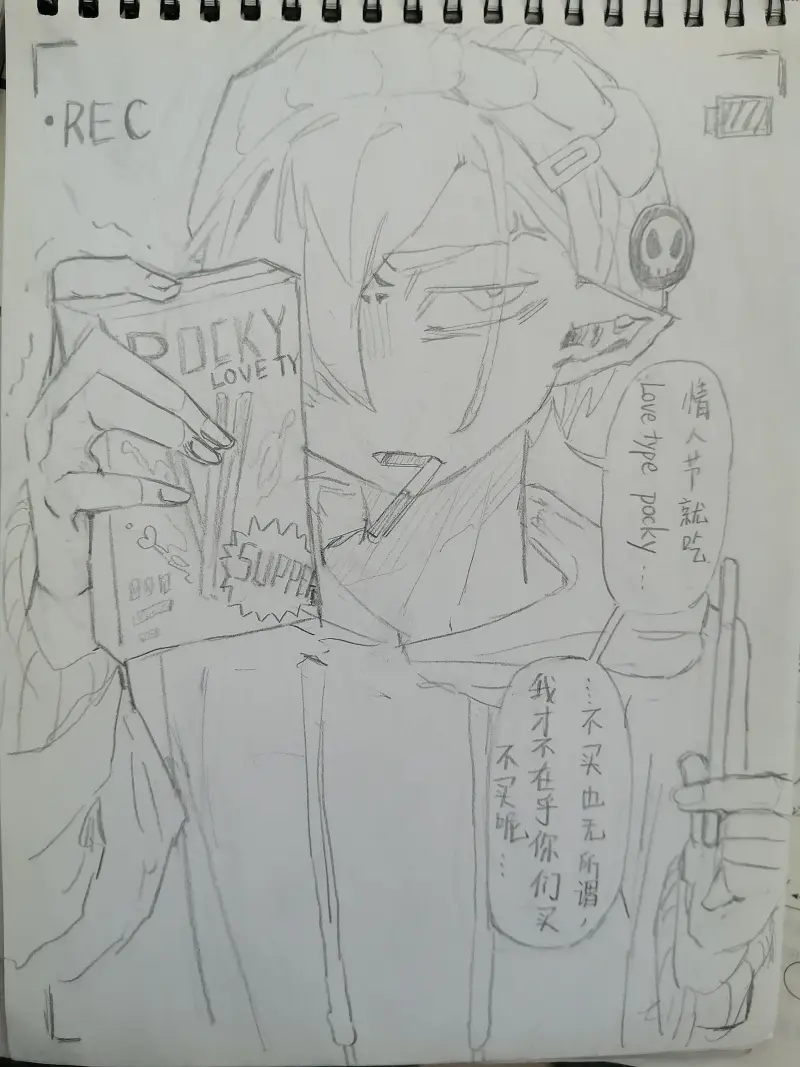 REC
POCKY
LOVE TY
SUPPE
情人节就吃
Love type pocky...
...不买也无所谓，
我才不在乎你们买
不买呢...